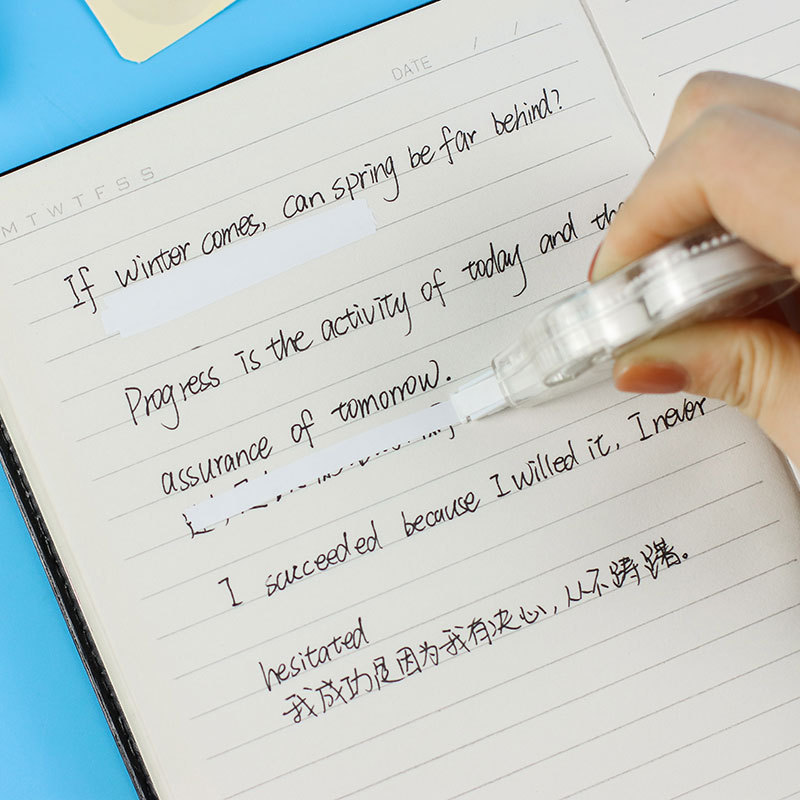 DATE / /
M T W T F S S
If winter comes, can spring be far behind?
Progress is the activity of today and the
assurance of tomorrow.
I succeeded because I willed it, I never
hesitated
我成功是因为我有决心,从不踌躇。